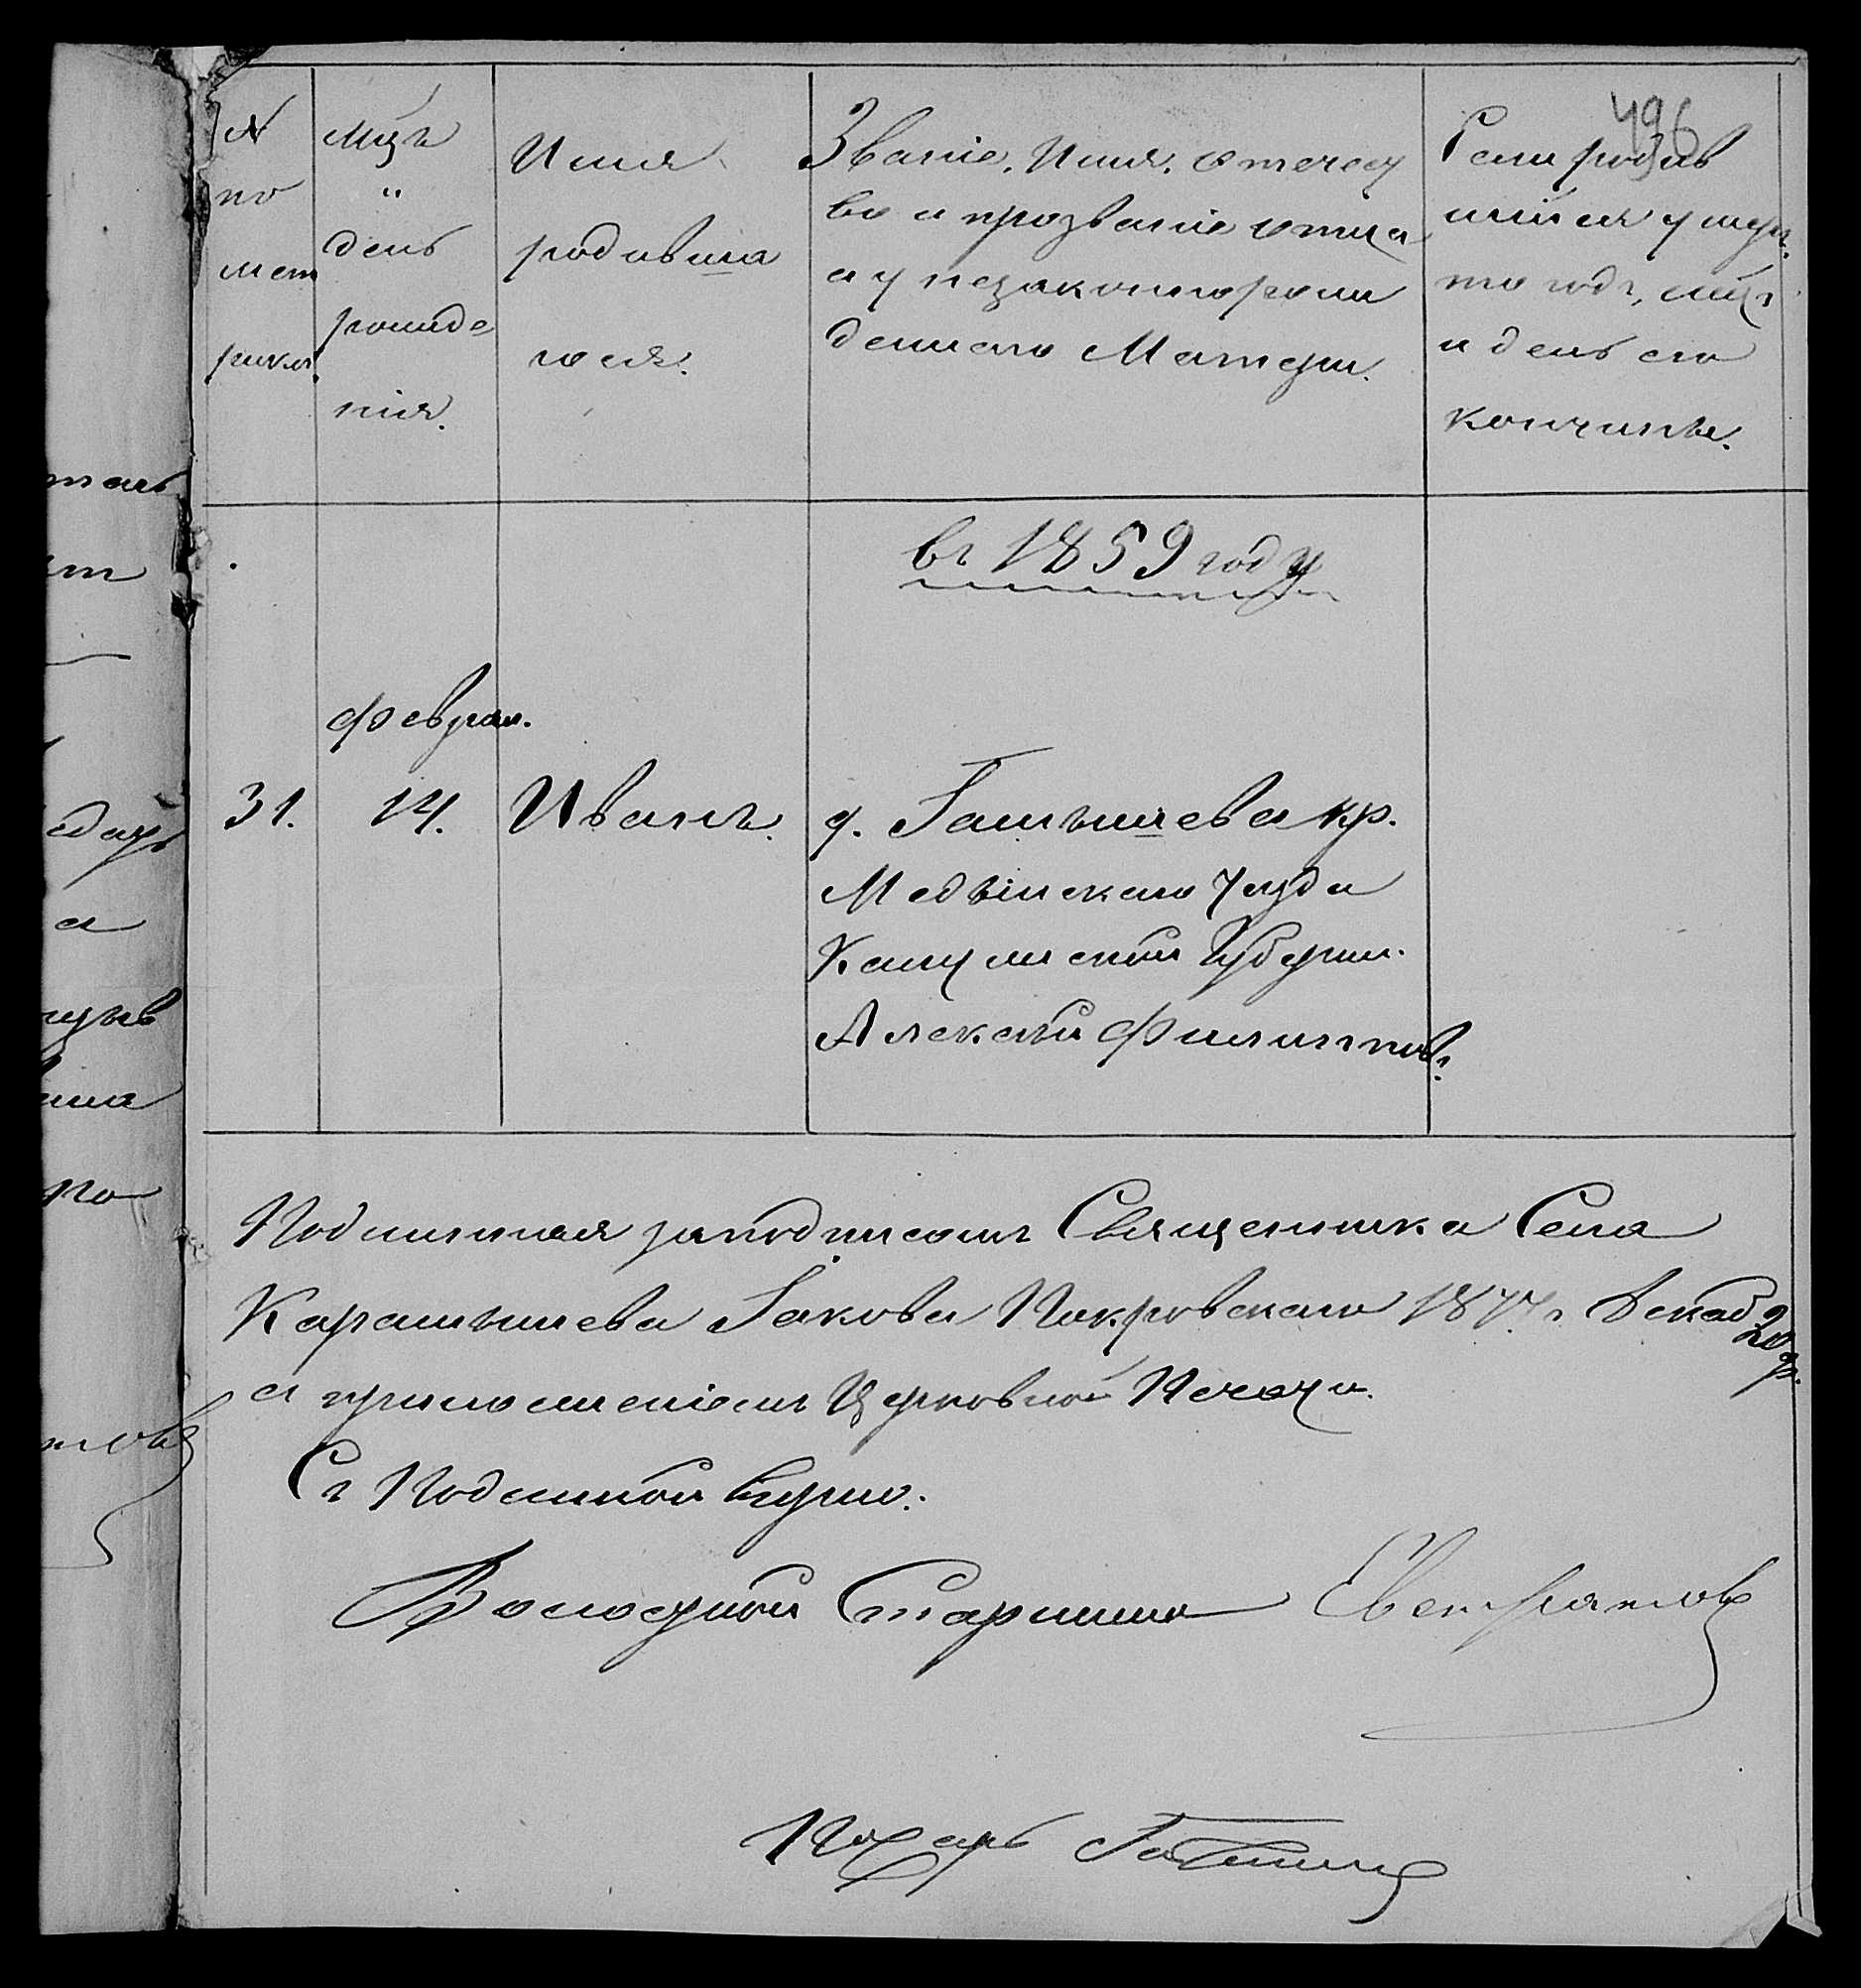 496
№
по
мет
рикѣ.
Мцъ
"
день
рожде
нія.
Имя
родивша
гося.
Званіе, Имя, отчест
во и прозваніе отца
а у незаконнорож
деннаго Матери.
Если родив
шійся умер.
то годъ, мцъ
и день его
кончины.
въ 1859 году
Феврал.
31. 14. Иванъ. д. Гатышева кр.
Медынскаго Уезда
Калужской Губерніи.
Алексѣй Филиповъ.
Подлинная за подписомъ Священника Села
Карамышева Іакова Покровскаго 1877 г. Декаб 20 д.
съ приложеніемъ Церковной Печати.
Съ Подлинной верно.
Волосной Старшина Евстратовъ
Писарь